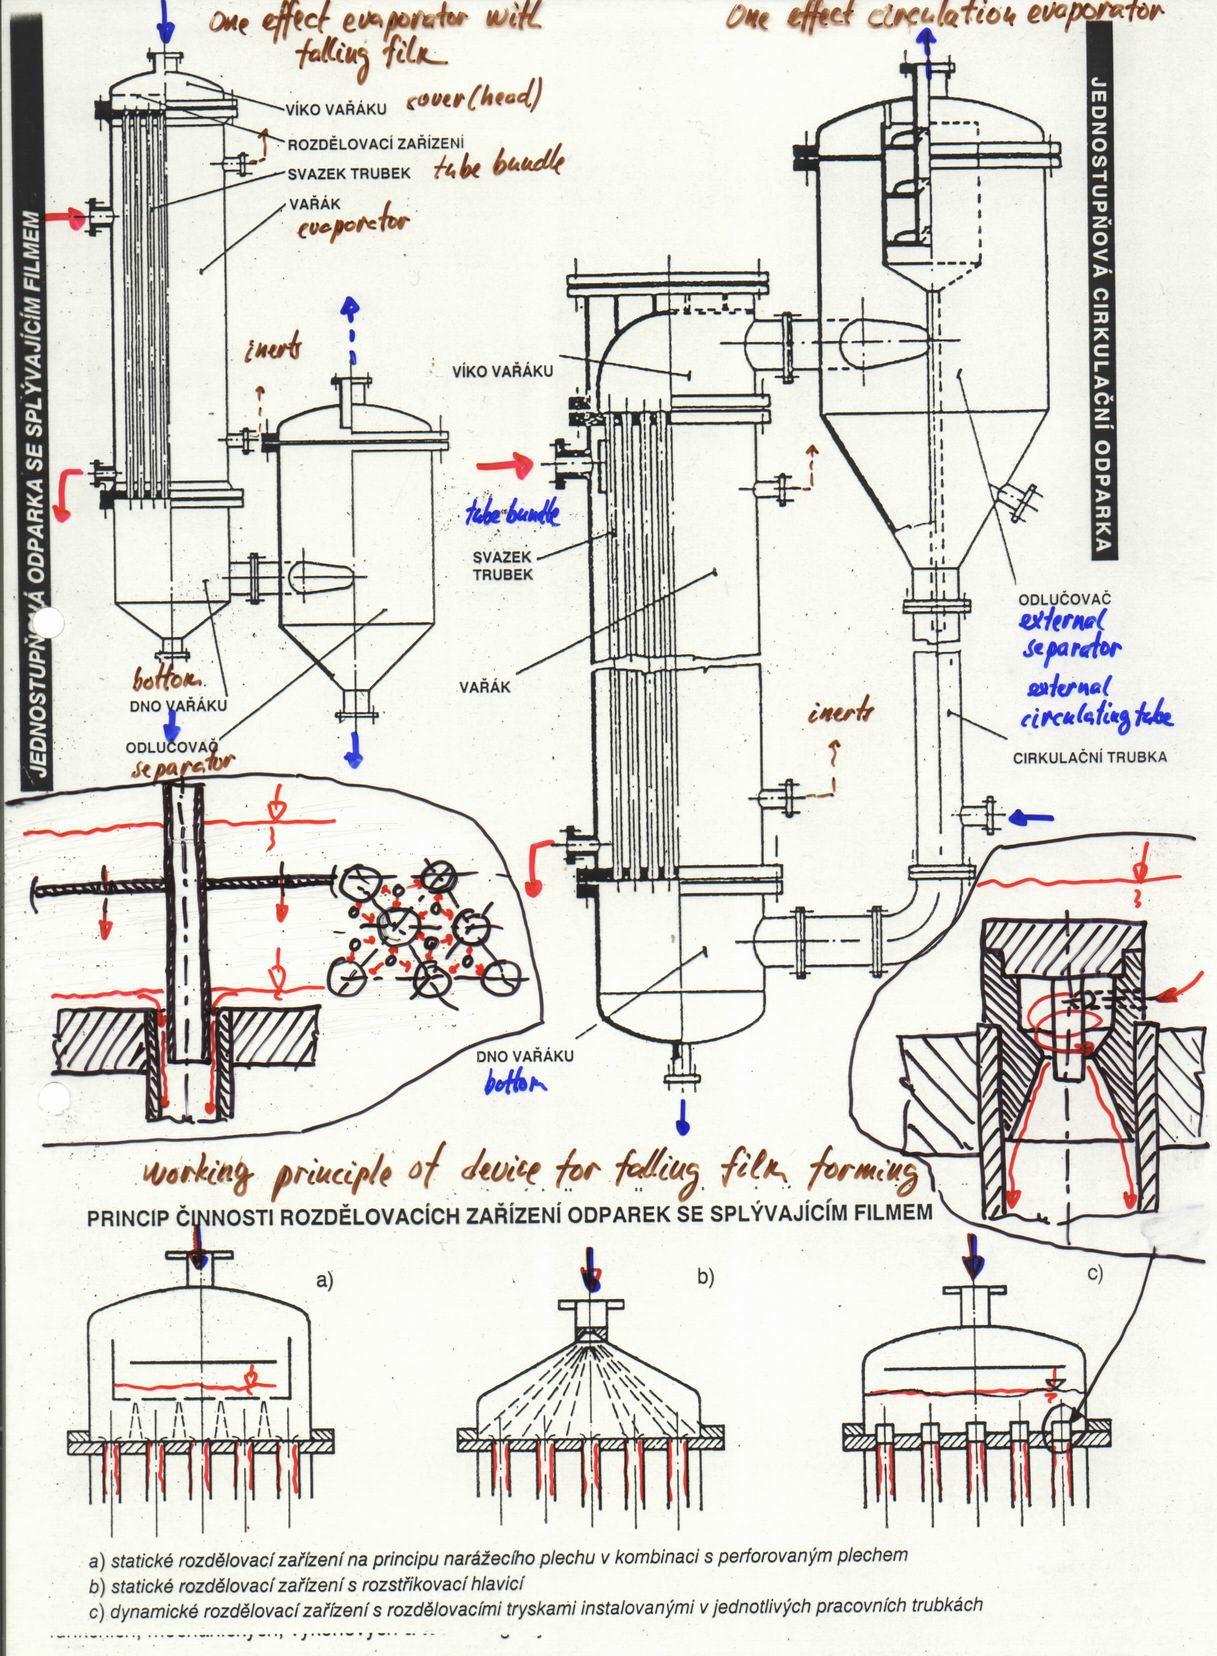 One effect evaporator with
falling film
One effect circulation evaporator
JEDNOSTUPŇOVÁ ODPARKA SE SPLÝVAJÍCÍM FILMEM
VÍKO VAŘÁKU cover (head)
ROZDĚLOVACÍ ZAŘÍZENÍ
SVAZEK TRUBEK tube bundle
VAŘÁK
evaporator
inerts
bottom
DNO VAŘÁKU
ODLUČOVAČ
separator
JEDNOSTUPŇOVÁ CIRKULAČNÍ ODPARKA
VÍKO VAŘÁKU
tube bundle
SVAZEK
TRUBEK
VAŘÁK
ODLUČOVAČ
external
separator
external
circulating tube
CIRKULAČNÍ TRUBKA
inerts
DNO VAŘÁKU
bottom
working principle of device for falling film forming
PRINCIP ČINNOSTI ROZDĚLOVACÍCH ZAŘÍZENÍ ODPAREK SE SPLÝVAJÍCÍM FILMEM
a) b) c)
a) statické rozdělovací zařízení na principu narážecího plechu v kombinaci s perforovaným plechem
b) statické rozdělovací zařízení s rozstřikovací hlavicí
c) dynamické rozdělovací zařízení s rozdělovacími tryskami instalovanými v jednotlivých pracovních trubkách